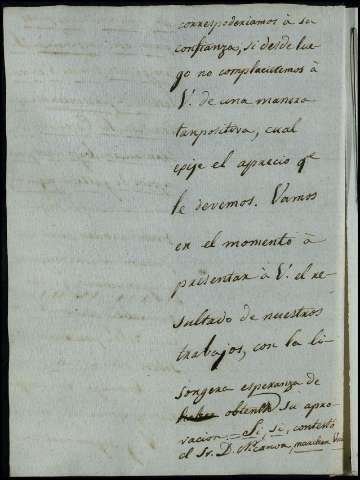 correspoderiamos à su
confianza, si desde lue-
go no complacieemos à
V. de una manera
tan positiva, cual
exije el aprecio qe
le devemos. Vamos
en el momento à
presentar à V. el re-
sultado de nuestros
trabajos, con la li-
songera esperanza de
obtener su apro-
vacion. = Si, si, contestó
el Sr. D. marchen